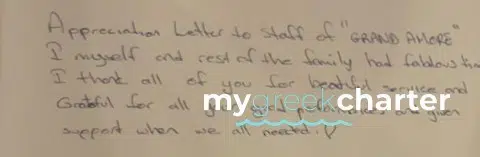 Appreciation Letter to staff of "GRAND AMORE"
I myself and rest of the family had fablous
I thank all of you for beatiful service and
Grateful for all and given
support when we all needed.
mygreekcharter